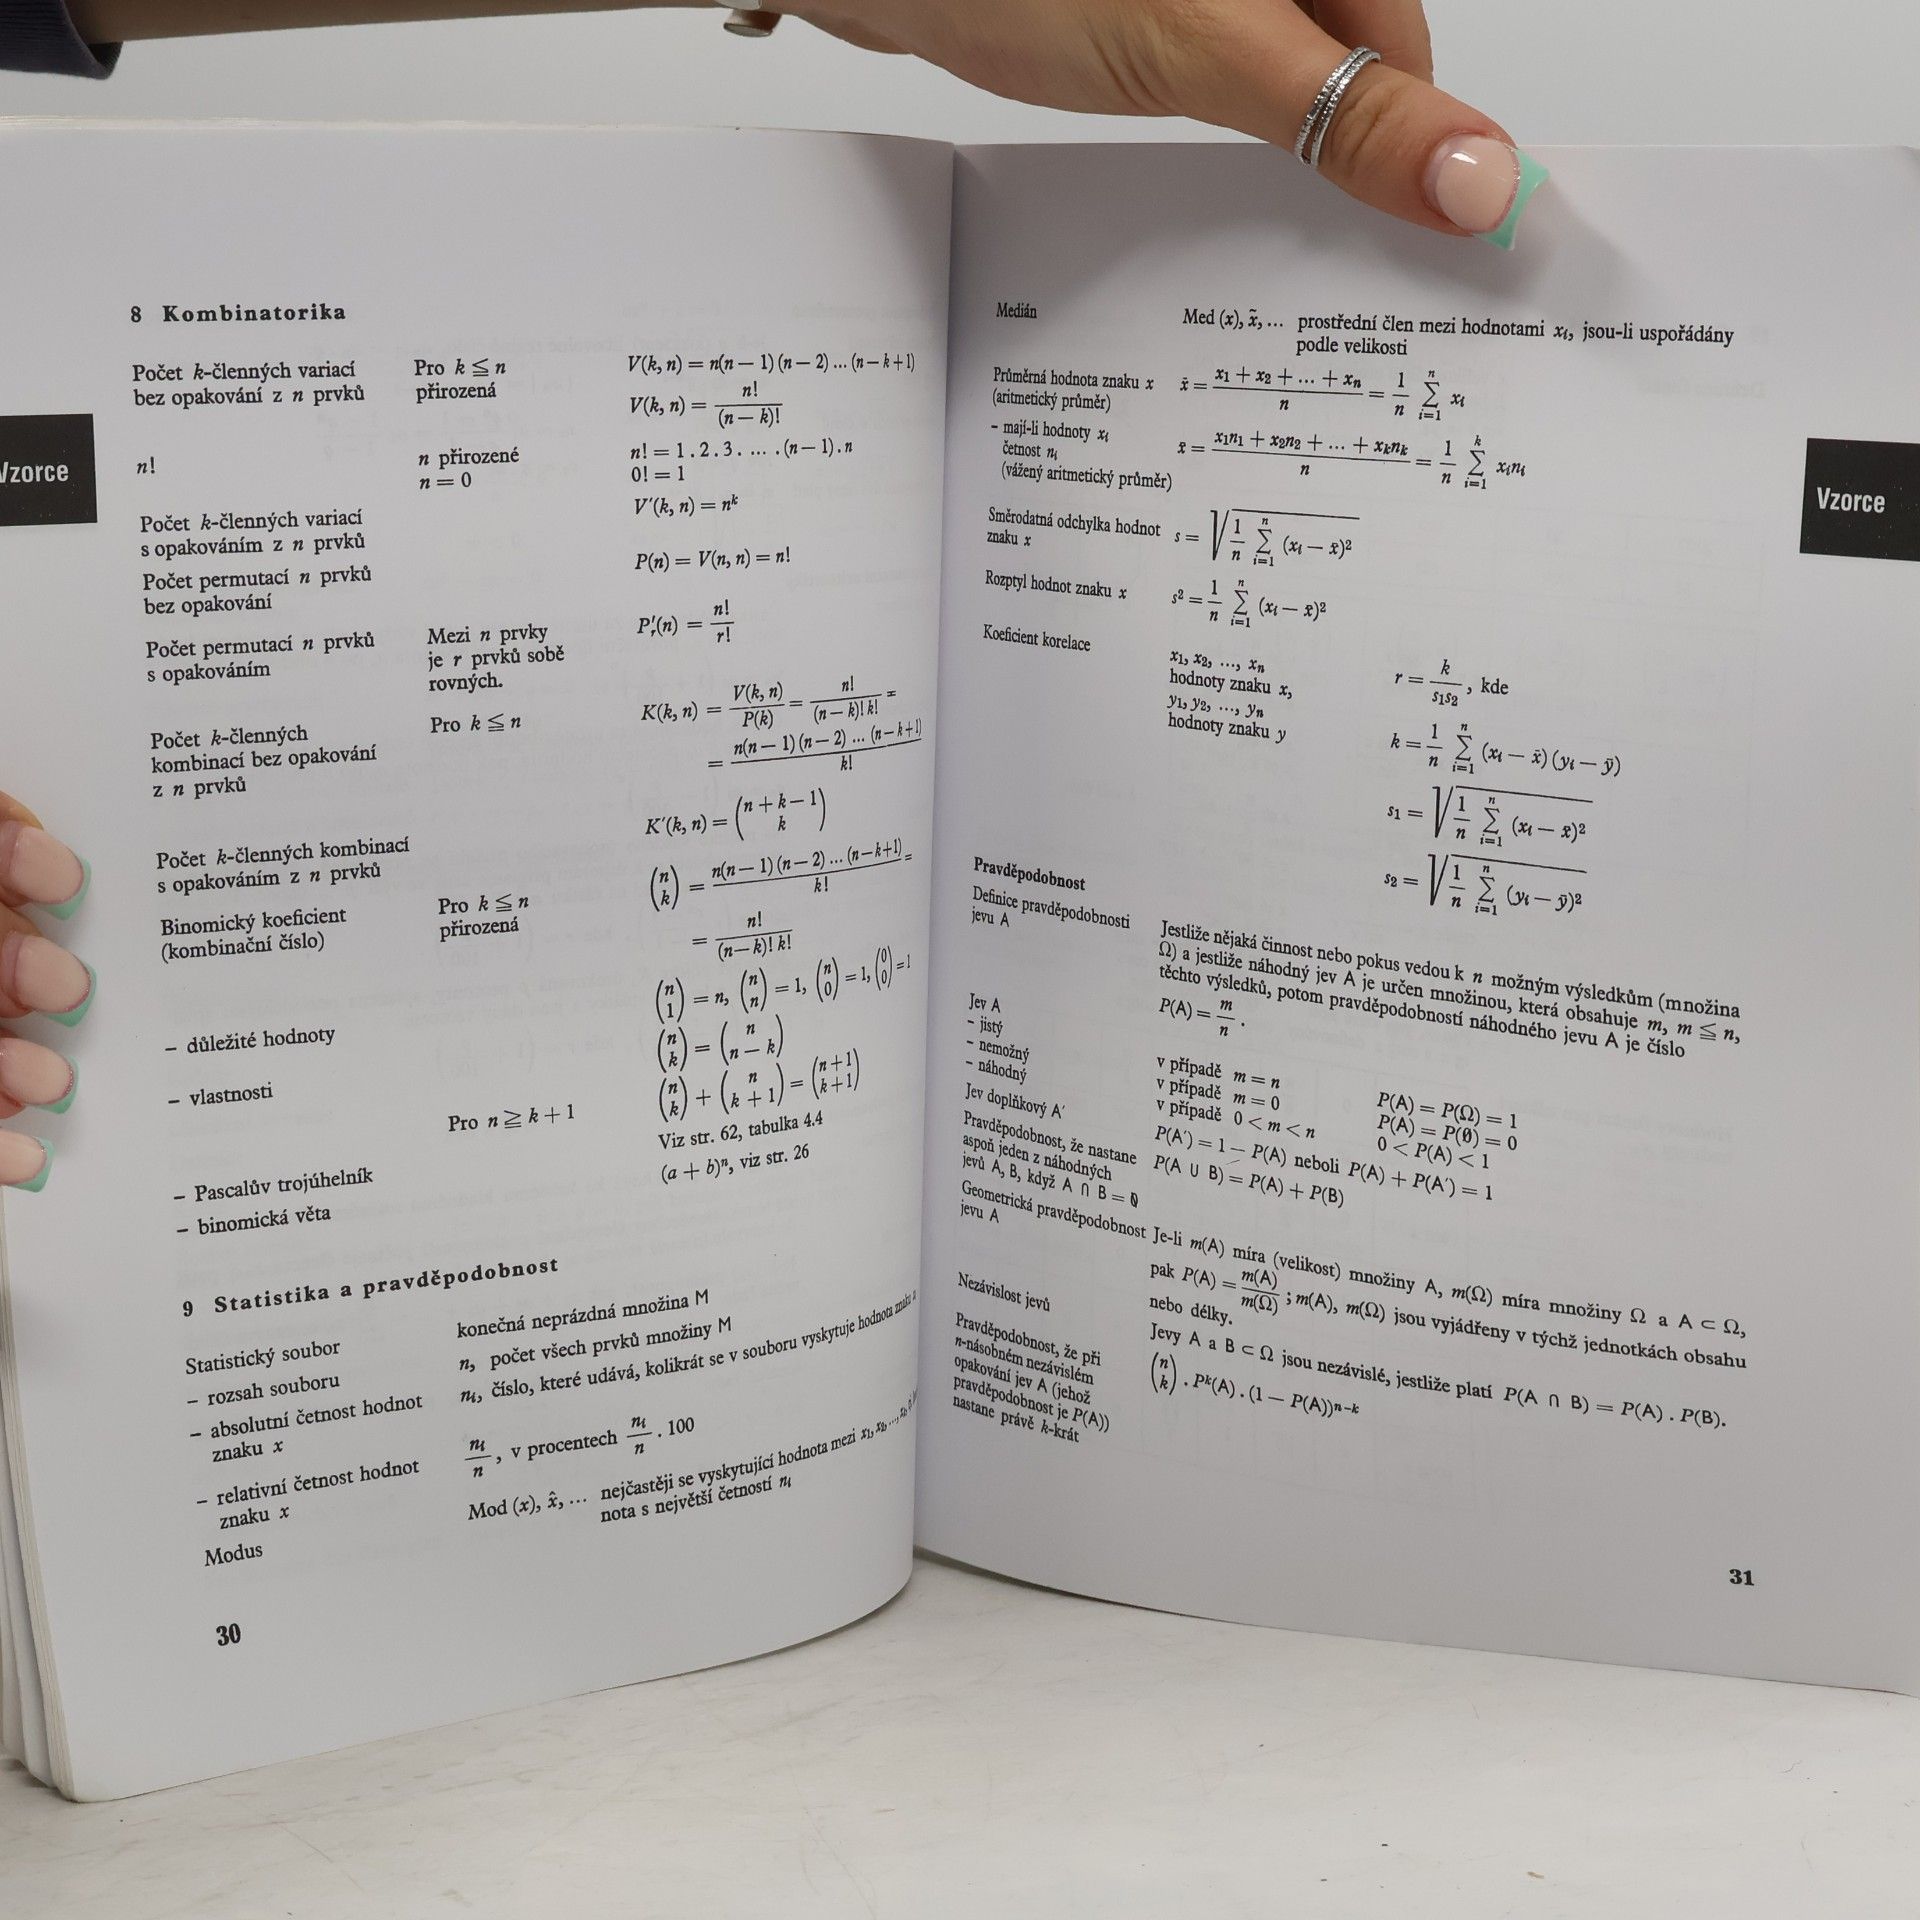 Vzorce
8 Kombinatorika
Počet k-členných variací
bez opakování z n prvků
Pro k ≦ n
přirozená
V(k, n) = n(n − 1) (n − 2) ... (n − k + 1)
V(k, n) = n! / (n − k)!
n!
n přirozené
n = 0
n! = 1 . 2 . 3 . ... . (n − 1) . n
0! = 1
Počet k-členných variací
s opakováním z n prvků
V′(k, n) = nᵏ
Počet permutací n prvků
bez opakování
P(n) = V(n, n) = n!
Počet permutací n prvků
s opakováním
Mezi n prvky
je r prvků sobě
rovných.
P′ᵣ(n) = n! / r!
Počet k-členných
kombinací bez opakování
z n prvků
Pro k ≦ n
K(k, n) = V(k, n) / P(k) = n! / (n − k)! k! =
= n(n − 1) (n − 2) ... (n − k + 1) / k!
Počet k-členných kombinací
s opakováním z n prvků
K′(k, n) = (n + k − 1 k)
Binomický koeficient
(kombinační číslo)
Pro k ≦ n
přirozená
(n k) = n(n − 1) (n − 2) ... (n − k + 1) / k! =
= n! / (n − k)! k!
– důležité hodnoty
(n 1) = n, (n n) = 1, (n 0) = 1, (0 0) = 1
– vlastnosti
(n k) = (n n − k)
Pro n ≧ k + 1
(n k) + (n k + 1) = (n + 1 k + 1)
– Pascalův trojúhelník
Viz str. 62, tabulka 4.4
– binomická věta
(a + b)ⁿ, viz str. 26
9 Statistika a pravděpodobnost
Statistický soubor
konečná neprázdná množina M
– rozsah souboru
n, počet všech prvků množiny M
– absolutní četnost hodnot
znaku x
nᵢ, číslo, které udává, kolikrát se v souboru vyskytuje hodnota znaku
– relativní četnost hodnot
znaku x
nᵢ / n, v procentech nᵢ / n . 100
Modus
Mod (x), x̂, ... nejčastěji se vyskytující hodnota mezi x₁, x₂, ...,
nota s největší četností nᵢ
30
Medián
Med (x), x̃, ... prostřední člen mezi hodnotami xᵢ, jsou-li uspořádány
podle velikosti
Průměrná hodnota znaku x
(aritmetický průměr)
x̄ = x₁ + x₂ + ... + xₙ / n = 1/n ⁿ∑ᵢ₌₁ xᵢ
– mají-li hodnoty xᵢ
četnost nᵢ
(vážený aritmetický průměr)
x̄ = x₁n₁ + x₂n₂ + ... + xₖnₖ / n = 1/n ᵏ∑ᵢ₌₁ xᵢnᵢ
Směrodatná odchylka hodnot
znaku x
s = √(1/n ⁿ∑ᵢ₌₁ (xᵢ − x̄)²)
Rozptyl hodnot znaku x
s² = 1/n ⁿ∑ᵢ₌₁ (xᵢ − x̄)²
Koeficient korelace
x₁, x₂, ..., xₙ
hodnoty znaku x,
y₁, y₂, ..., yₙ
hodnoty znaku y
r = k / s₁s₂, kde
k = 1/n ⁿ∑ᵢ₌₁ (xᵢ − x̄) (yᵢ − ȳ)
s₁ = √(1/n ⁿ∑ᵢ₌₁ (xᵢ − x̄)²)
s₂ = √(1/n ⁿ∑ᵢ₌₁ (yᵢ − ȳ)²)
Pravděpodobnost
Definice pravděpodobnosti
jevu A
Jestliže nějaká činnost nebo pokus vedou k n možným výsledkům (množina
Ω) a jestliže náhodný jev A je určen množinou, která obsahuje m, m ≦ n,
těchto výsledků, potom pravděpodobností náhodného jevu A je číslo
P(A) = m / n .
Jev A
– jistý
v případě m = n
P(A) = P(Ω) = 1
– nemožný
v případě m = 0
P(A) = P(∅) = 0
– náhodný
v případě 0 < m < n
0 < P(A) < 1
Jev doplňkový A′
P(A′) = 1 − P(A) neboli P(A) + P(A′) = 1
Pravděpodobnost, že nastane
aspoň jeden z náhodných
jevů A, B, když A ∩ B = ∅
P(A ∪ B) = P(A) + P(B)
Geometrická pravděpodobnost
jevu A
Je-li m(A) míra (velikost) množiny A, m(Ω) míra množiny Ω a A ⊂ Ω,
pak P(A) = m(A) / m(Ω) ; m(A), m(Ω) jsou vyjádřeny v týchž jednotkách obsahu
nebo délky.
Nezávislost jevů
Jevy A a B ⊂ Ω jsou nezávislé, jestliže platí P(A ∩ B) = P(A) . P(B).
Pravděpodobnost, že při
n-násobném nezávislém
opakování jev A (jehož
pravděpodobnost je P(A))
nastane právě k-krát
(n k) . Pᵏ(A) . (1 − P(A))ⁿ⁻ᵏ
31
Vzorce